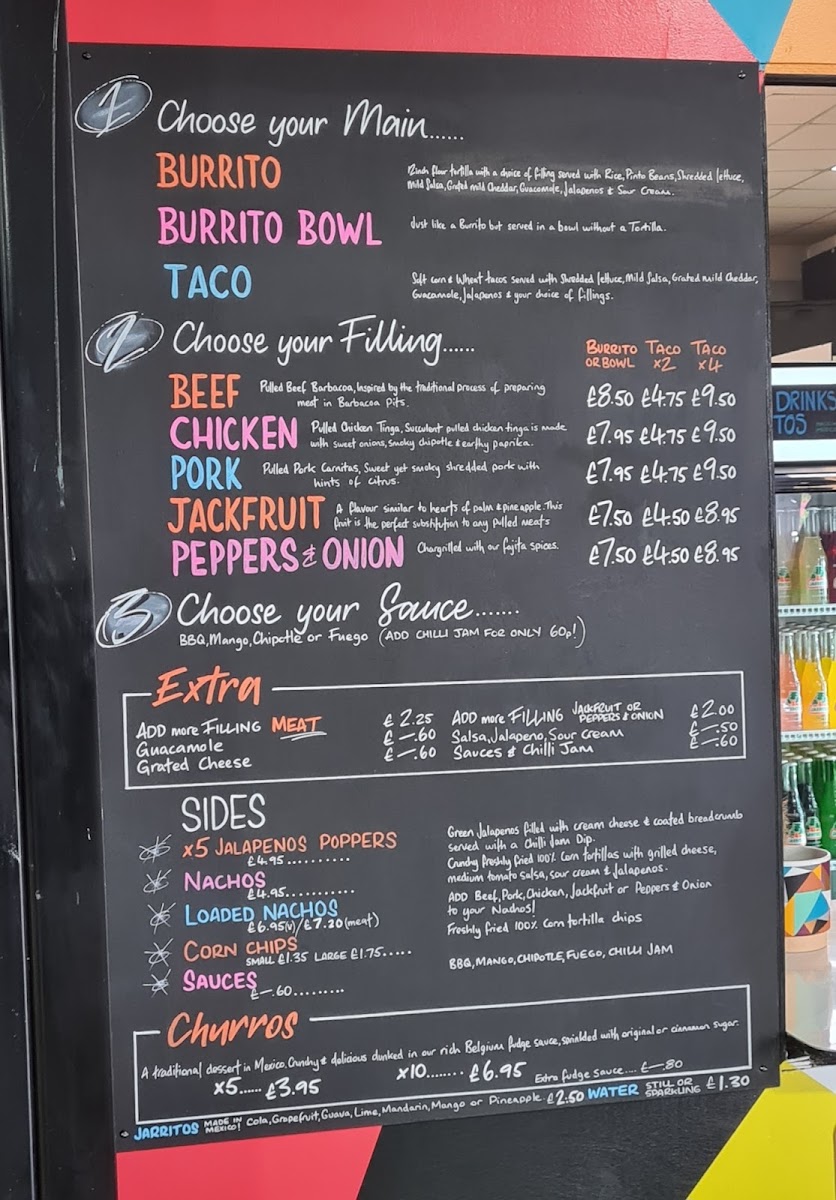 1 Choose your Main......
BURRITO
12inch flour tortilla with a choice of filling served with Rice, Pinto Beans, Shredded lettuce,
Mild Salsa, Grated mild Cheddar, Guacamole, Jalapenos & Sour Cream.
BURRITO BOWL
Just like a Burrito but served in a bowl without a Tortilla.
TACO
Soft corn & Wheat tacos served with Shredded lettuce, Mild Salsa, Grated Mild Cheddar,
Guacamole, Jalapenos & your choice of fillings.
2 Choose your Filling......
BURRITO TACO TACO
OR BOWL x2 x4
BEEF Pulled Beef Barbacoa, Inspired by the traditional process of preparing
meat in Barbacoa Pits.
£8.50 £4.75 £9.50
CHICKEN Pulled Chicken Tinga, Succulent pulled chicken tinga is made
with sweet onions, smoky chipotle & earthy paprika.
£7.95 £4.75 £9.50
PORK Pulled Pork Carnitas, Sweet yet smoky shredded pork with
hints of citrus.
£7.95 £4.75 £9.50
JACKFRUIT A flavour similar to hearts of palm & pineapple. This
fruit is the perfect substitution to any Pulled Meats
£7.50 £4.50 £8.95
PEPPERS & ONION Chargrilled with our fajita spices.
£7.50 £4.50 £8.95
3 Choose your Sauce.......
BBQ, Mango, Chipotle or Fuego (ADD CHILLI JAM FOR ONLY 60p!)
Extra
ADD more FILLING MEAT £2.25
Guacamole £-.60
Grated Cheese £-.60
ADD more FILLING JACKFRUIT OR PEPPERS & ONION £2.00
Salsa, Jalapeno, Sour Cream £-.50
Sauces & Chilli Jam £-.60
SIDES
x5 JALAPENOS POPPERS
£4.95..........
Green Jalapenos filled with cream cheese & coated breadcrumb
served with a Chilli Jam Dip.
NACHOS
£4.95...........
Crunchy freshly fried 100% Corn tortillas with grilled cheese,
medium tomato salsa, sour cream & jalapenos.
LOADED NACHOS
£6.95(v)/£7.20(meat)
ADD Beef, Pork, Chicken, Jackfruit or Peppers & Onion
to your Nachos!
CORN CHIPS
SMALL £1.35 LARGE £1.75.....
Freshly fried 100% Corn tortilla chips
SAUCES
£-.60.........
BBQ, MANGO, CHIPOTLE, FUEGO, CHILLI JAM
Churros
A traditional dessert in Mexico. Crunchy & delicious dunked in our rich Belgium fudge sauce, sprinkled with original or cinnamon sugar.
x5...... £3.95 x10........ £6.95 Extra fudge sauce.... £-.80
JARRITOS MADE IN MEXICO! Cola, Grapefruit, Guava, Lime, Mandarin, Mango or Pineapple £2.50 WATER STILL OR SPARKLING £1.30
DRINKS
TOS